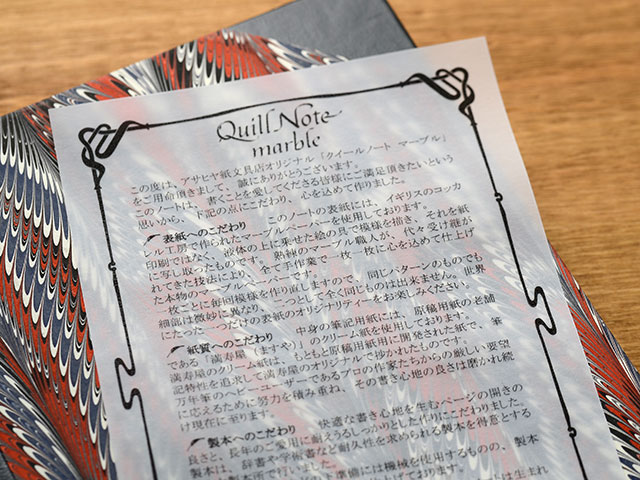 Quill Note
marble
この度は、アサヒヤ紙文具店オリジナル「クイールノート マーブル」
をご用命頂きまして、誠にありがとうございます。
このノートは、書くことを愛してくださる皆様にご満足頂きたいという
思いから、下記の点にこだわり、心を込めて作りました。
表紙へのこだわり このノートの表紙には、イギリスのコッカ
レル工房で作られたマーブルペーパーを使用しております。
印刷ではなく、液体の上に乗せた絵の具で模様を描き、それを紙
に写し取ったものです。熟練のマーブル職人が、代々受け継が
れてきた技法により、全て手作業で一枚一枚に心を込めて仕上げ
た本物のマーブルペーパーです。
一枚ごとに毎回模様を作り直しますので、同じパターンのものでも
細部は微妙に異なり、二つとして全く同じものは出来ません。世界
にたった一つだけの表紙のオリジナリティーをお楽しみください。
紙質へのこだわり 中身の筆記用紙には、原稿用紙の老舗
である「満寿屋（ますや）」のクリーム紙を使用しております。
満寿屋のクリーム紙は、もともと原稿用紙用に開発された紙で、筆
記特性を追求して満寿屋のオリジナルで抄かれたものです。
万年筆のヘビーユーザーであるプロの作家たちからの厳しい要望
に応えるために努力を積み重ね、その書き心地の良さは磨かれ続
け現在に至ります。
製本へのこだわり 快適な書き心地を生むページの開きの
良さと、長年のご愛用に耐えうるしっかりとした作りにこだわりました。
製本は、辞書や学術書など耐久性を求められる製本を得意とする
製本所で行いました。
準備には機械を使用するものの、製本